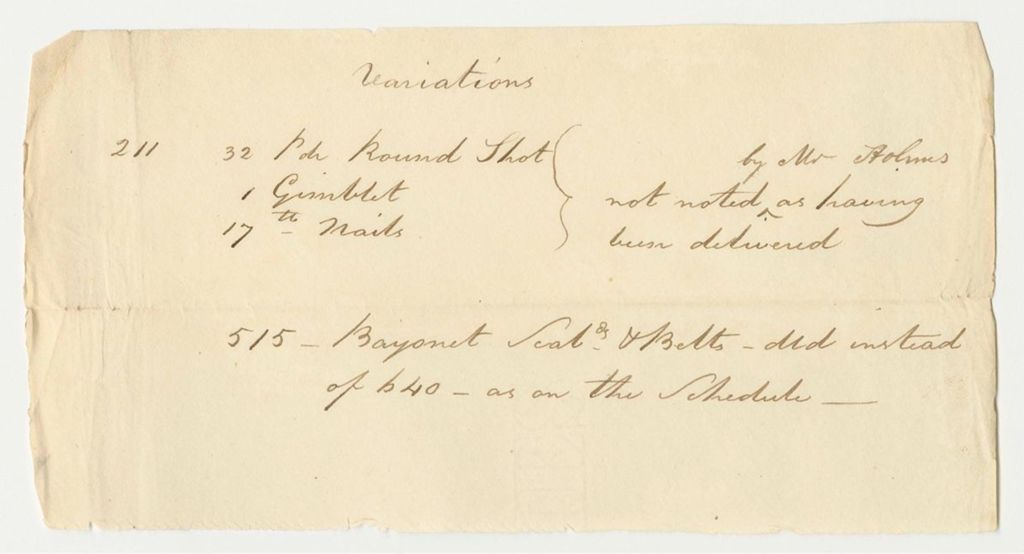 Variations
by Mr Holmes
211 32 Pdr Round Shot
1 Gimblet not noted ^ as having
17 lb Nails been delivered
515 - Bayonet Scabds & Belts - dld instead
of 640 - as on the Schedule —